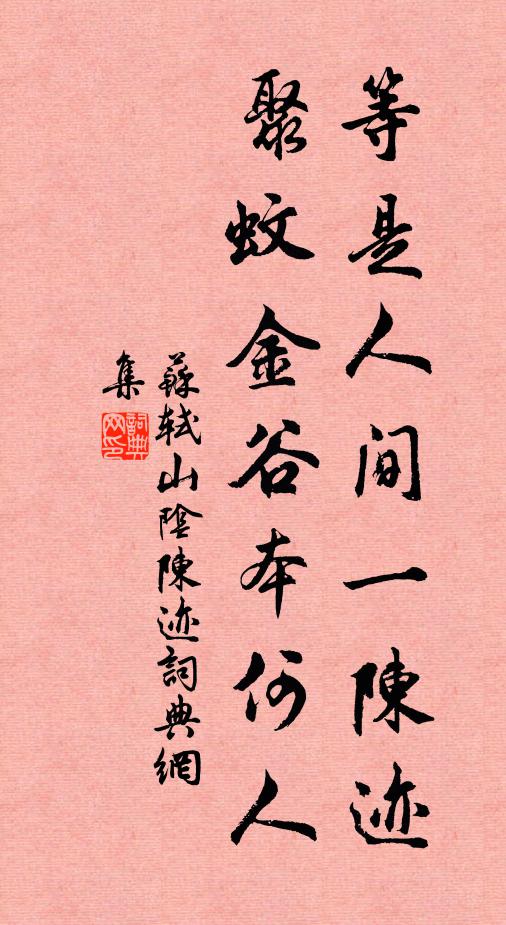 等是人间一陳迹
聚蚊金谷本何人
蘇轼山陰陳迹詞典網
集
詞典
网印